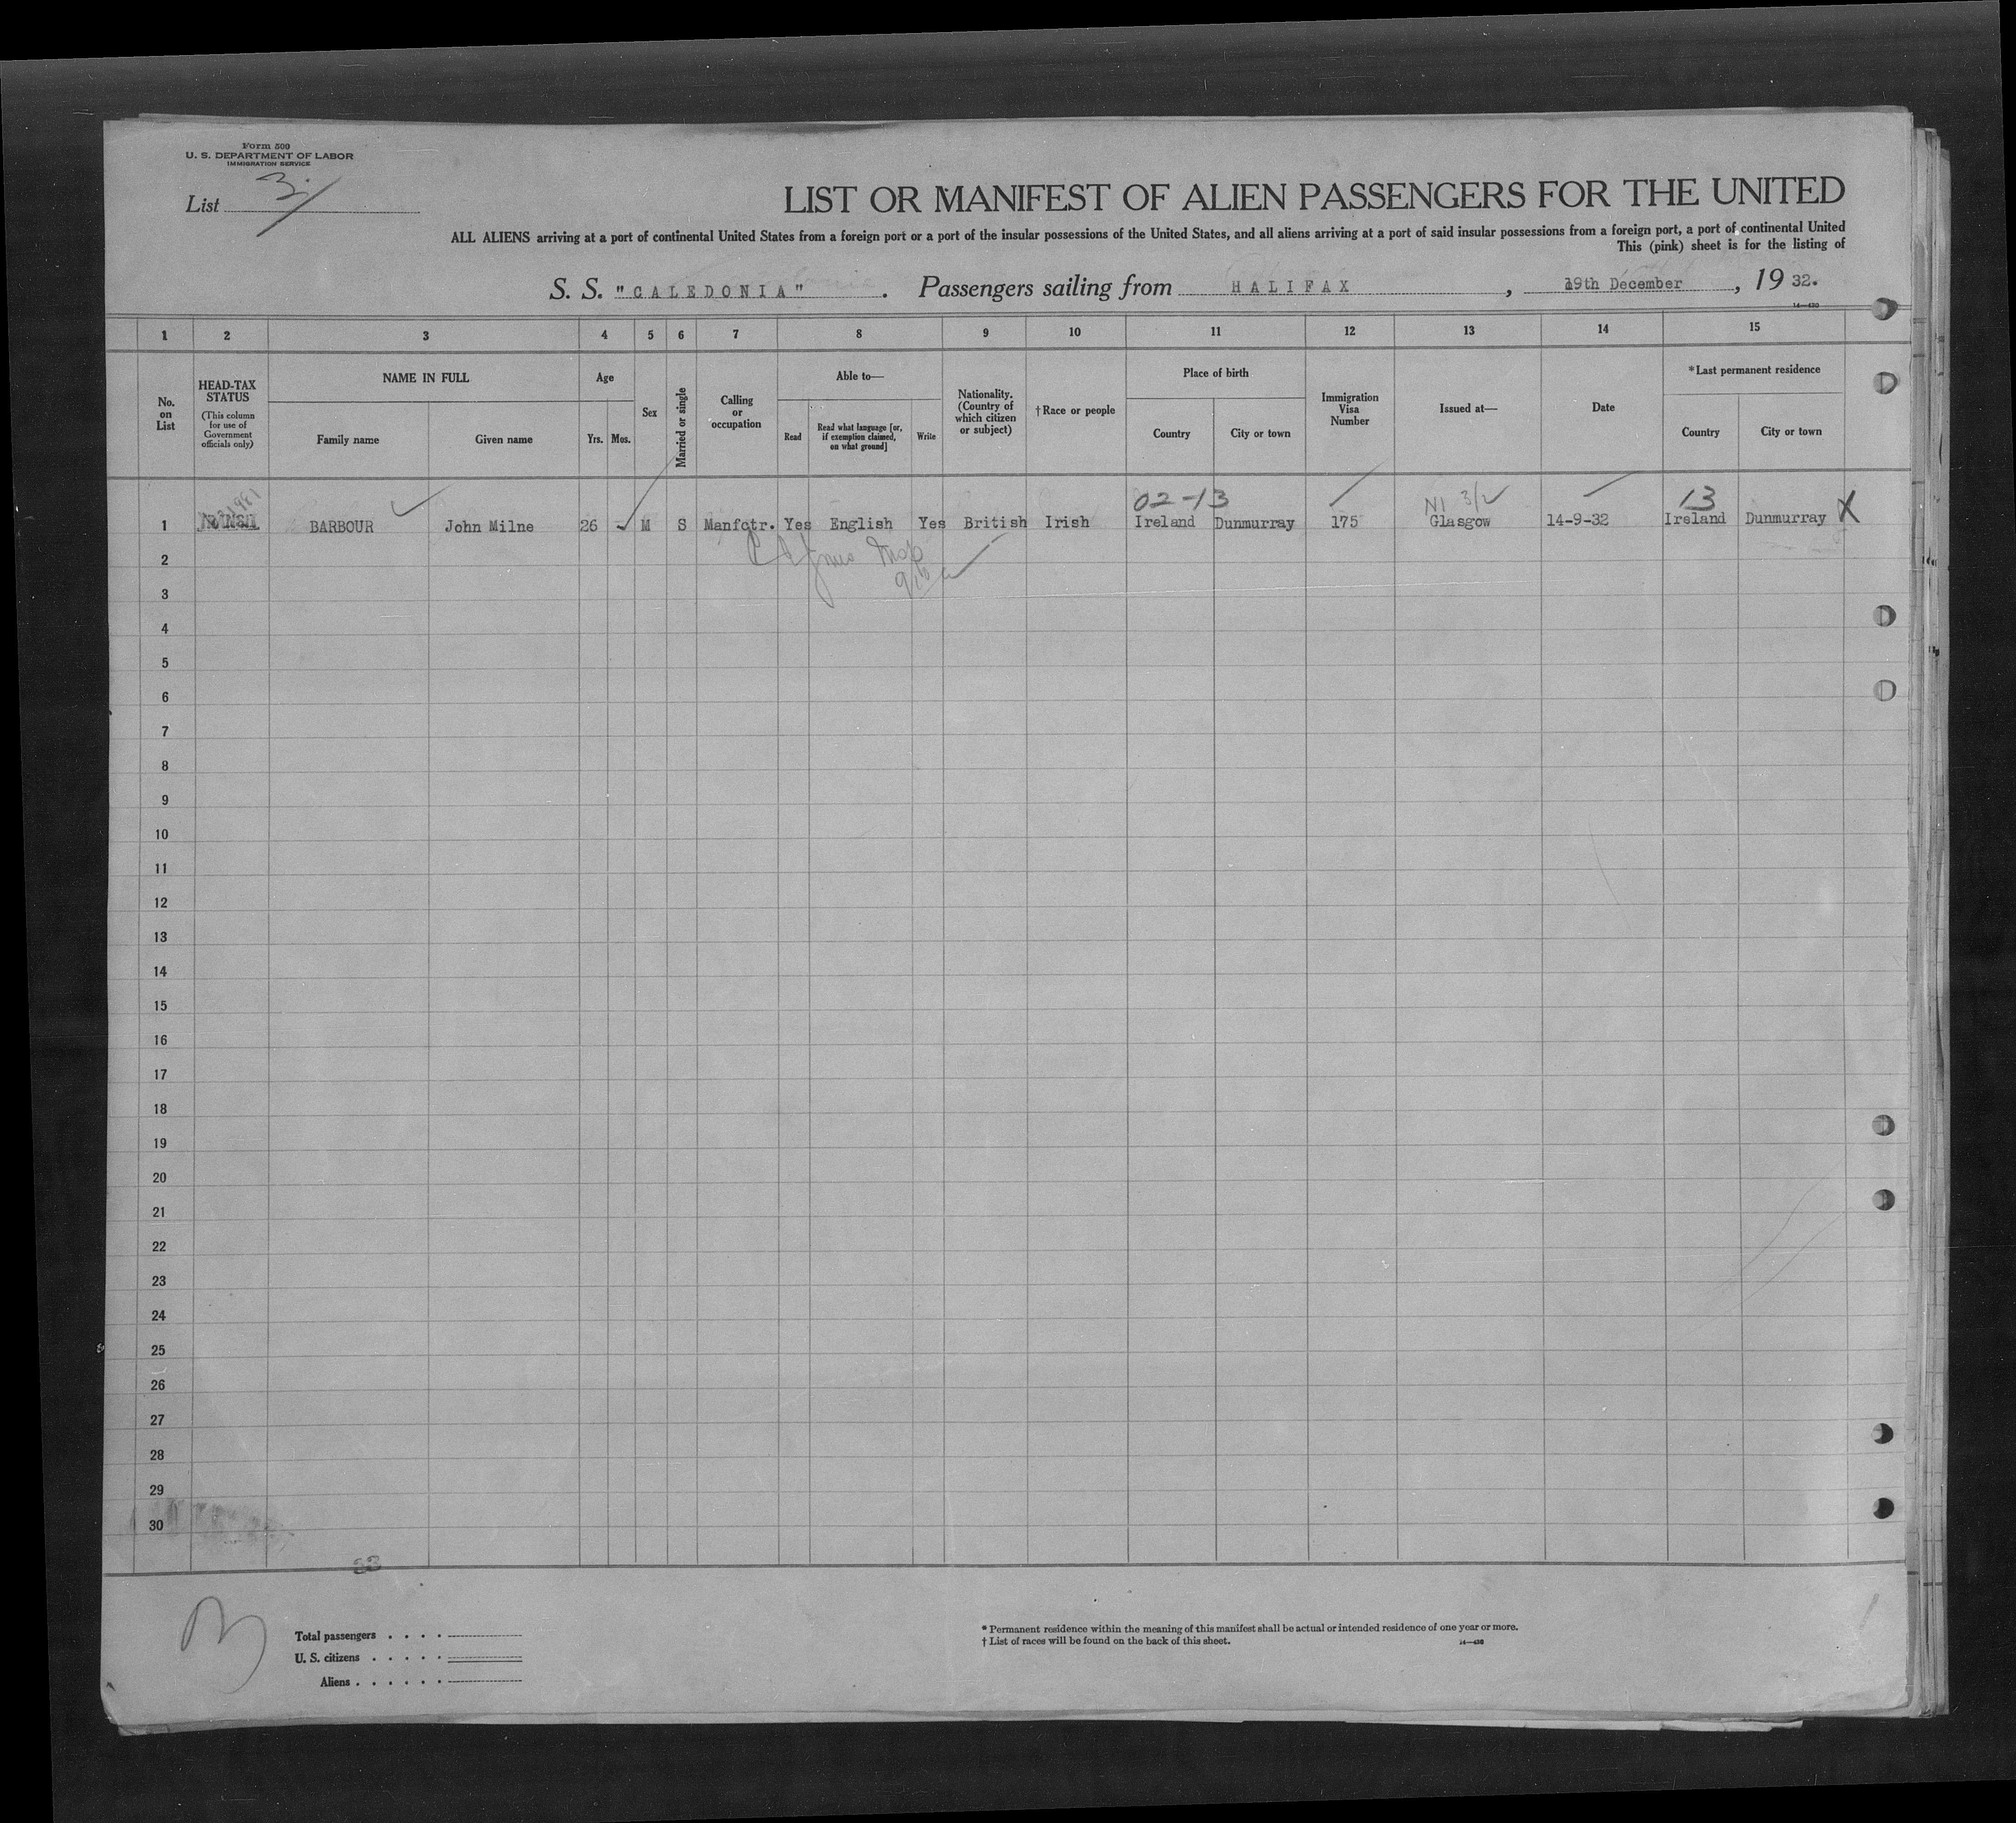 Form 500
U. S. DEPARTMENT OF LABOR
IMMIGRATION SERVICE
List 3
LIST OR MANIFEST OF ALIEN PASSENGERS FOR THE UNITED
ALL ALIENS arriving at a port of continental United States from a foreign port or a port of the insular possessions of the United States, and all aliens arriving at a port of said insular possessions from a foreign port, a port of continental United
This (pink) sheet is for the listing of
S. S. "CALEDONIA". Passengers sailing from HALIFAX, 19th December, 1932.
14—430
1 2 3 4 5 6 7 8 9 10 11 12 13 14 15
No. on List
HEAD-TAX STATUS
(This column for use of Government officials only)
NAME IN FULL
Family name
Given name
Age
Yrs. Mos.
Sex
Married or single
Calling or occupation
Able to—
Read
Read what language [or, if exemption claimed, on what ground]
Write
Nationality. (Country of which citizen or subject)
†Race or people
Place of birth
Country
City or town
Immigration Visa Number
Issued at—
Date
*Last permanent residence
Country
City or town
02-13 NI 3/2 13
1 BARBOUR John Milne 26 M S Manfctr. Yes English Yes British Irish Ireland Dunmurray 175 Glasgow 14-9-32 Ireland Dunmurray X
2
3
4
5
6
7
8
9
10
11
12
13
14
15
16
17
18
19
20
21
22
23
24
25
26
27
28
29
30
33
Total passengers . . . .
U. S. citizens . . . . .
Aliens . . . . . .
* Permanent residence within the meaning of this manifest shall be actual or intended residence of one year or more.
† List of races will be found on the back of this sheet.
14—430